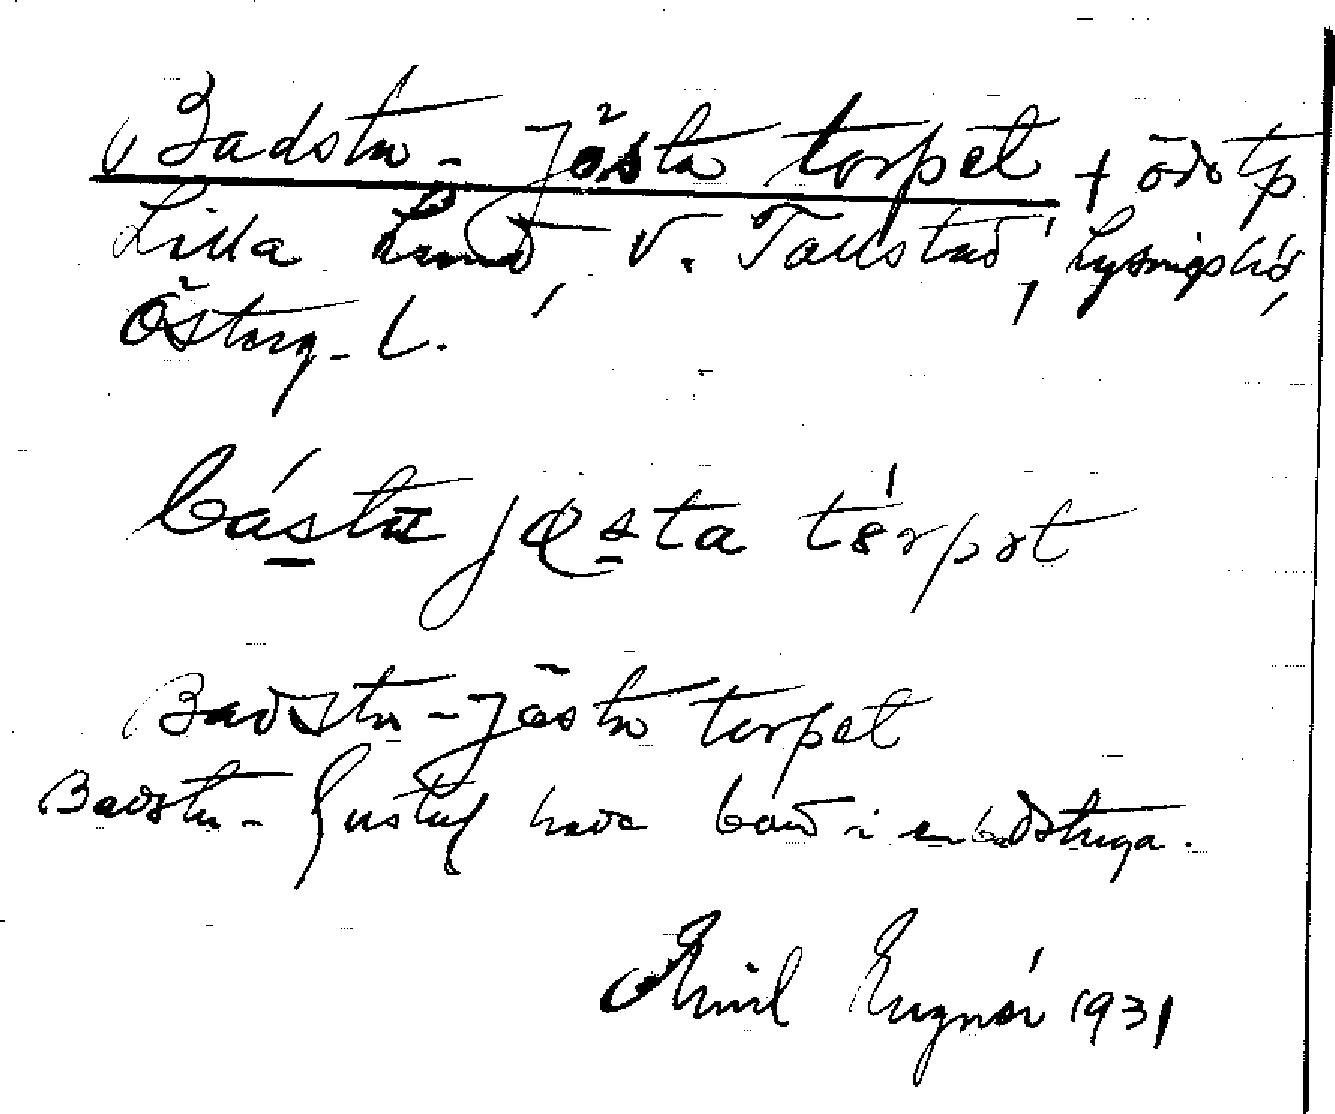 Badstu-Jösta torpet + öde tp
Lilla Lund, V. Tollstad, Lysings hd,
Österg. L.
bástu jœsta tɵ́rpət
Badstu-Jösta torpet
Badstu-Gustaf hade bott i en badstuga.
Emil 1931